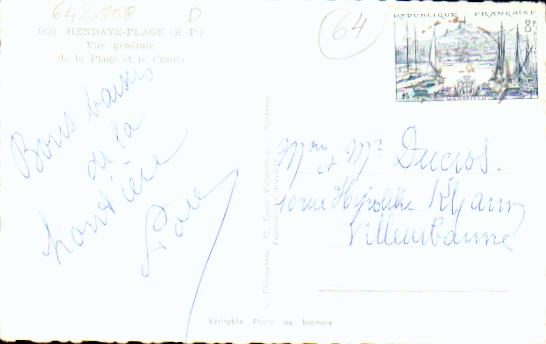 642708 D
64
1629 HENDAYE-PLAGE (B.-P.)
Vue générale
de la Plage et le Casino
RÉPUBLIQUE FRANÇAISE
8F
MARSEILLE
Bons baisers
de la
frontière
Mme et Mr Ducros.
rue Hippolite Kahn
Villeurbanne
Véritable Photo au bromure